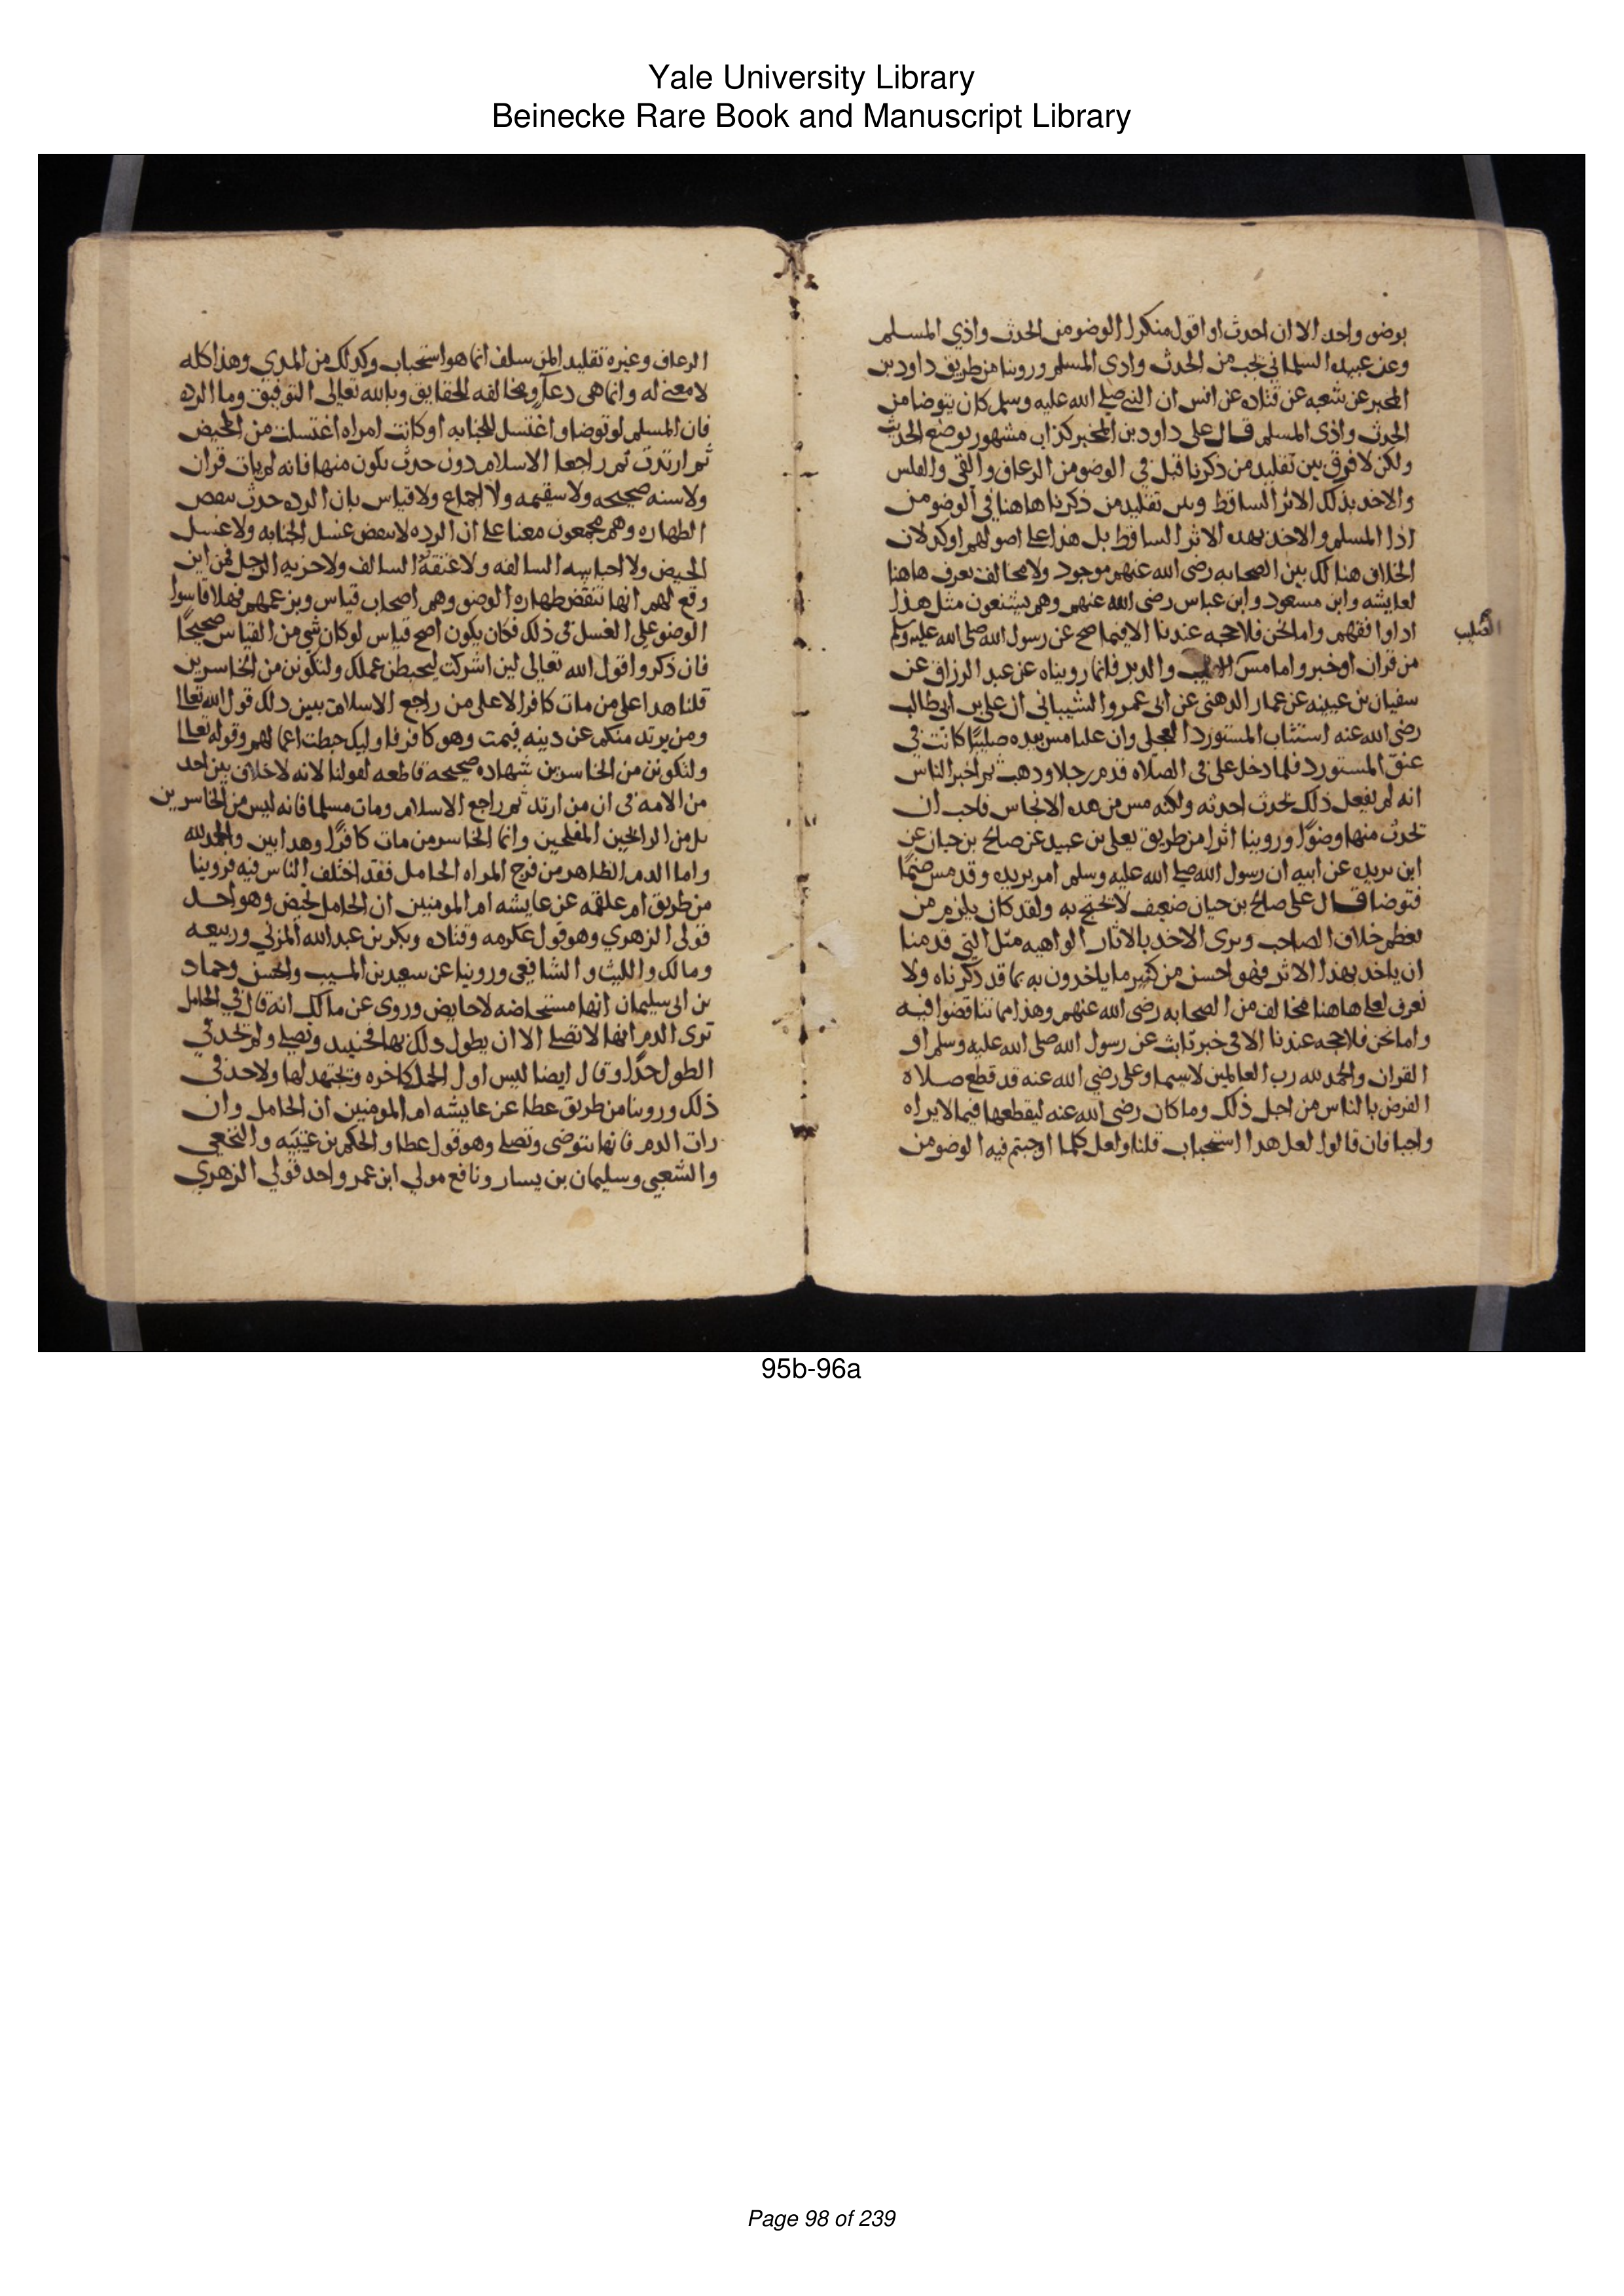 Yale University Library
Beinecke Rare Book and Manuscript Library
بوضو واحد الا ان احدث او اقول منكرا الوضو من الحدث واذي المسلم
وعن عبيده السلماني يجب من الحدث واذي المسلم وروينا من طريق داود بن
المحبر عن شعبه عن قتاده عن انس ان النبي صلى الله عليه وسلم كان يتوضا من
الحدث واذى المسلم قال على داود بن المحبر كذاب مشهور بوضع الحديث
ولكن لا فرق بين تقليد من ذكرنا قبل في الوضو من الرعاف والقي والقلس
والاخد بذلك الاثر الساقط وبين تقليد من ذكرنا هاهنا في الوضو من
اذا المسلم والاخذ بهدا الاثر الساقط بل هذا على اصولهم اوكد لان
الخلاف هنالك بين الصحابه رضى الله عنهم موجود ولا مخالف يعرف هاهنا
لعايشه وابن مسعود وابن عباس رضى الله عنهم وهم يشنعون مثل هذا
اداوافقهم واما نحن فلا حجه عندنا الا فيما صح عن رسول الله صلى الله عليه وسلم
من قران او خبر واما مس الصليب والدبر فانا رويناه عن عبد الرزاق عن
الصليب
سفيان بن عيينه عن عمار الدهني عن ابى عمرو الشيبانى ان على بن ابى طالب
رضى الله عنه استتاب المستورد العجلى وان عليا مس بيده صليبا كانت في
عنق المستورد فلما دخل على في الصلاه قدم رجلا ودهب ثم اخبر الناس
انه لم يفعل ذلك لحدث احدثه ولكنه مس من هده الانجاس فاحب ان
يحدث منها وضوا وروينا اثرا من طريق يعلى بن عبيد عن صالح بن حيان عن
ابن بريده عن ابيه ان رسول الله صلى الله عليه وسلم امر بريده وقد مس صنما
فتوضا قال على صالح بن حيان ضعيف لا يحتج به ولقد كان يلزم من
يعظم خلاف الصاحب ويرى الاخد بالاثار الواهيه مثل التي قدمنا
ان ياخد بهذا الاثر فهو احسن من كثير ما ياخدون به مما قد ذكرناه ولا
يعرف لعلي هاهنا مخالف من الصحابه رضى الله عنهم وهذا مما تناقضوا فيه
واما نحن فلا حجه عندنا الا في خبر ثابت عن رسول الله صلى الله عليه وسلم او
القران والحمد لله رب العالمين لا سيما وعلى رضي الله عنه قد قطع صلاه
الفرض بالناس من اجل ذلك وما كان رضى الله عنه ليقطعها فيما لا يراه
واجبا فان قالوا لعل هدا استحباب قلنا ولعل كلما اوجبتم فيه الوضو من
الرعاف وغيره تقليدا لمن سلف انما هو استحباب وكدلك من المدي وهذا كله
لا معنى له وانما هى دعاو مخالفه للحقايق وبالله تعالى التوفيق وما الرده
فان المسلم لو توضا واغتسل للجنابه او كانت امراه اغتسلت من الحيض
ثم ارتدت ثم راجعا الاسلام دون حدث يكون منها فانه لم يات قران
ولا سنه صحيحه ولا سقيمه ولا اجماع ولا قياس بان الرده حدث ينقض
الطهاره وهم مجمعون معنا على ان الرده لا تنقض غسل الجنابه ولا غسل
الحيض ولا احباسه السالفه ولا عتقه السالف ولا حزيه الرجل فمن اين
وقع لهم انها تنقض طهاره الوضو وهم اصحاب قياس وبزعمهم فهلا قاسوا
الوضو على الغسل في ذلك فكان يكون اصح قياس لو كان شي من القياس صحيحا
فان ذكروا قول الله تعالى لين اشركت ليحبطن عملك ولتكونن من الخاسرين
قلنا هدا على من مات كافرا لا على من راجع الاسلام يبين دلك قول الله تعالى
ومن يرتد منكم عن دينه فيمت وهو كافر فاوليك حبطت اعمالهم وقوله تعالى
ولتكونن من الخاسرين شهاده صحيحه قاطعه لقولنا لانه لا خلاف بين احد
من الامه في ان من ارتد ثم راجع الاسلام ومات مسلما فانه ليس من الخاسرين
بل من الرابحين المفلحين وانما الخاسر من مات كافرا وهدا بين والحمد لله
واما الدم الظاهر من فرج المراه الحامل فقد اختلف الناس فيه فروينا
من طريق ام علقمه عن عايشه ام المومنين ان الحامل تحيض وهو احد
قولى الزهري وهو قول عكرمه وقتاده وبكر بن عبد الله المزني وربيعه
ومالك والليث والشافعى وروينا عن سعيد بن المسيب والحسن وحماد
بن ابى سليمان انها مستحاضه لا حايض وروى عن مالك انه قال في الحامل
ترى الدم انها لا تصلى الا ان يطول دلك بها فحينيد وتصلى ولم يحد في
الطول حدا وقال ايضا ليس اول الحمل كاخره وتجتهد لها ولا حد في
ذلك وروينا من طريق عطا عن عايشه ام المومنين ان الحامل وان
رات الدم فانها تتوضى وتصلى وهو قول عطا والحكم بن عتيبه والنخعي
والشعبي وسليمان بن يسار ونافع مولي ابن عمر واحد قولي الزهري
95b-96a
Page 98 of 239